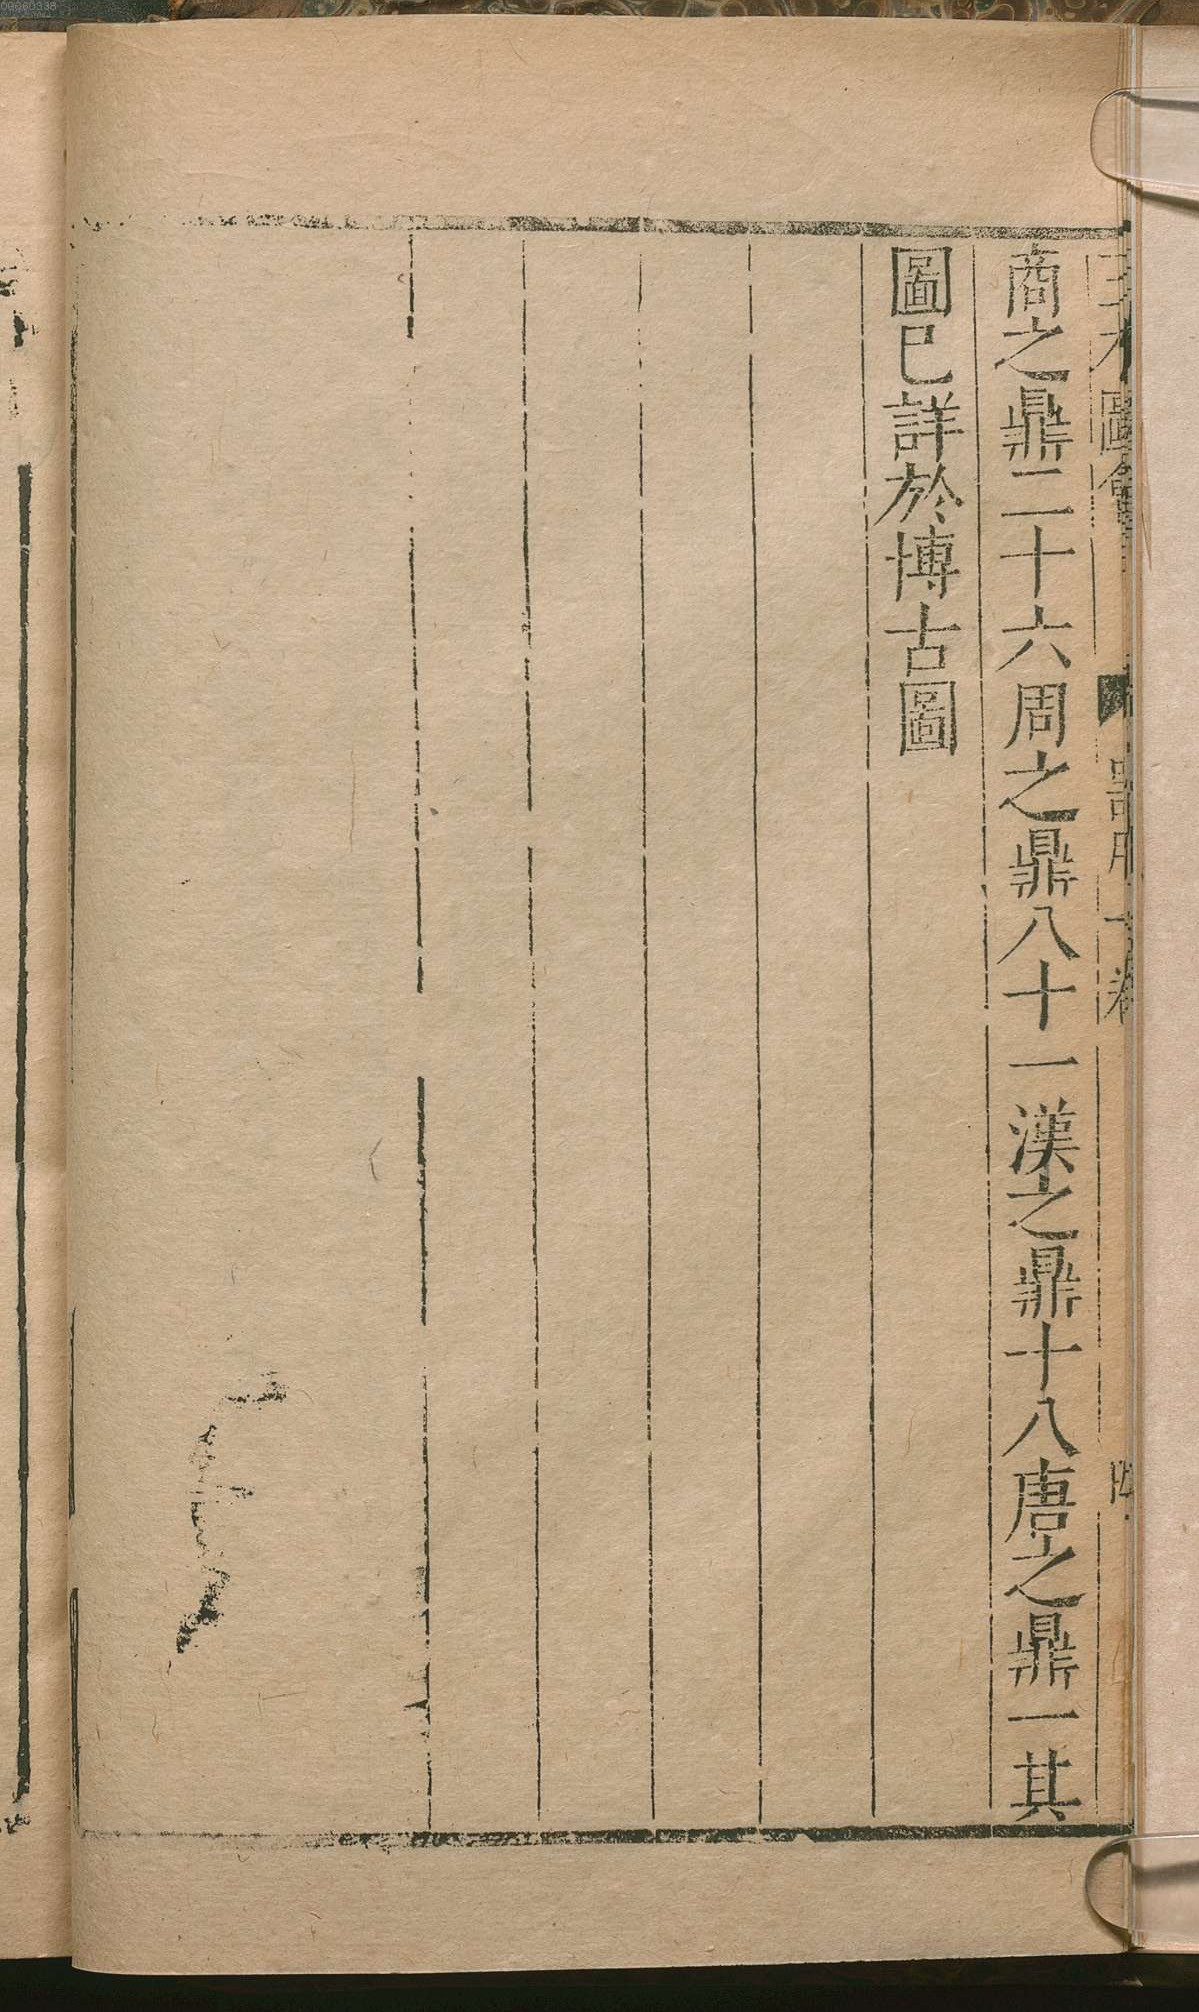 商之鼎二十六周之鼎八十一漢之鼎十八唐之鼎一其
圖已詳於博古圖
00060338